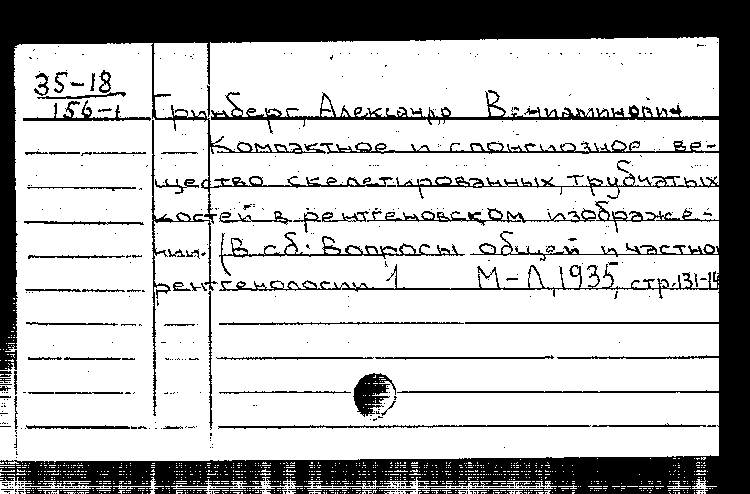 35-18
156-1
Гринберг, Александр Вениаминович
Компактное и спонгиозное ве-
щество скелетированных трубчатых
костей в рентгеновском изображе-
нии. (В сб: Вопросы общей и частной
рентгенологии 1 М-Л, 1935, стр. 131-14